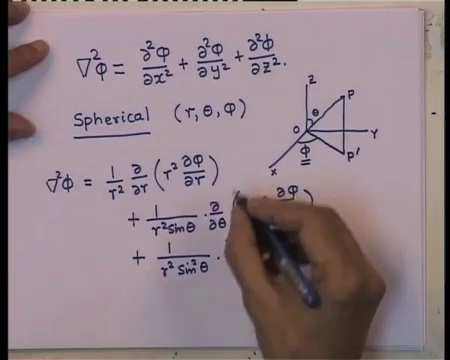 ∇²φ = ∂²φ/∂x² + ∂²φ/∂y² + ∂²φ/∂z².
Spherical (r, θ, φ)
Z
θ
P
O
Y
φ
P'
X
∇²φ = 1/r² ∂/∂r (r² ∂φ/∂r)
+ 1/r² sinθ · ∂/∂θ ( ∂φ )
+ 1/r² sin²θ ·